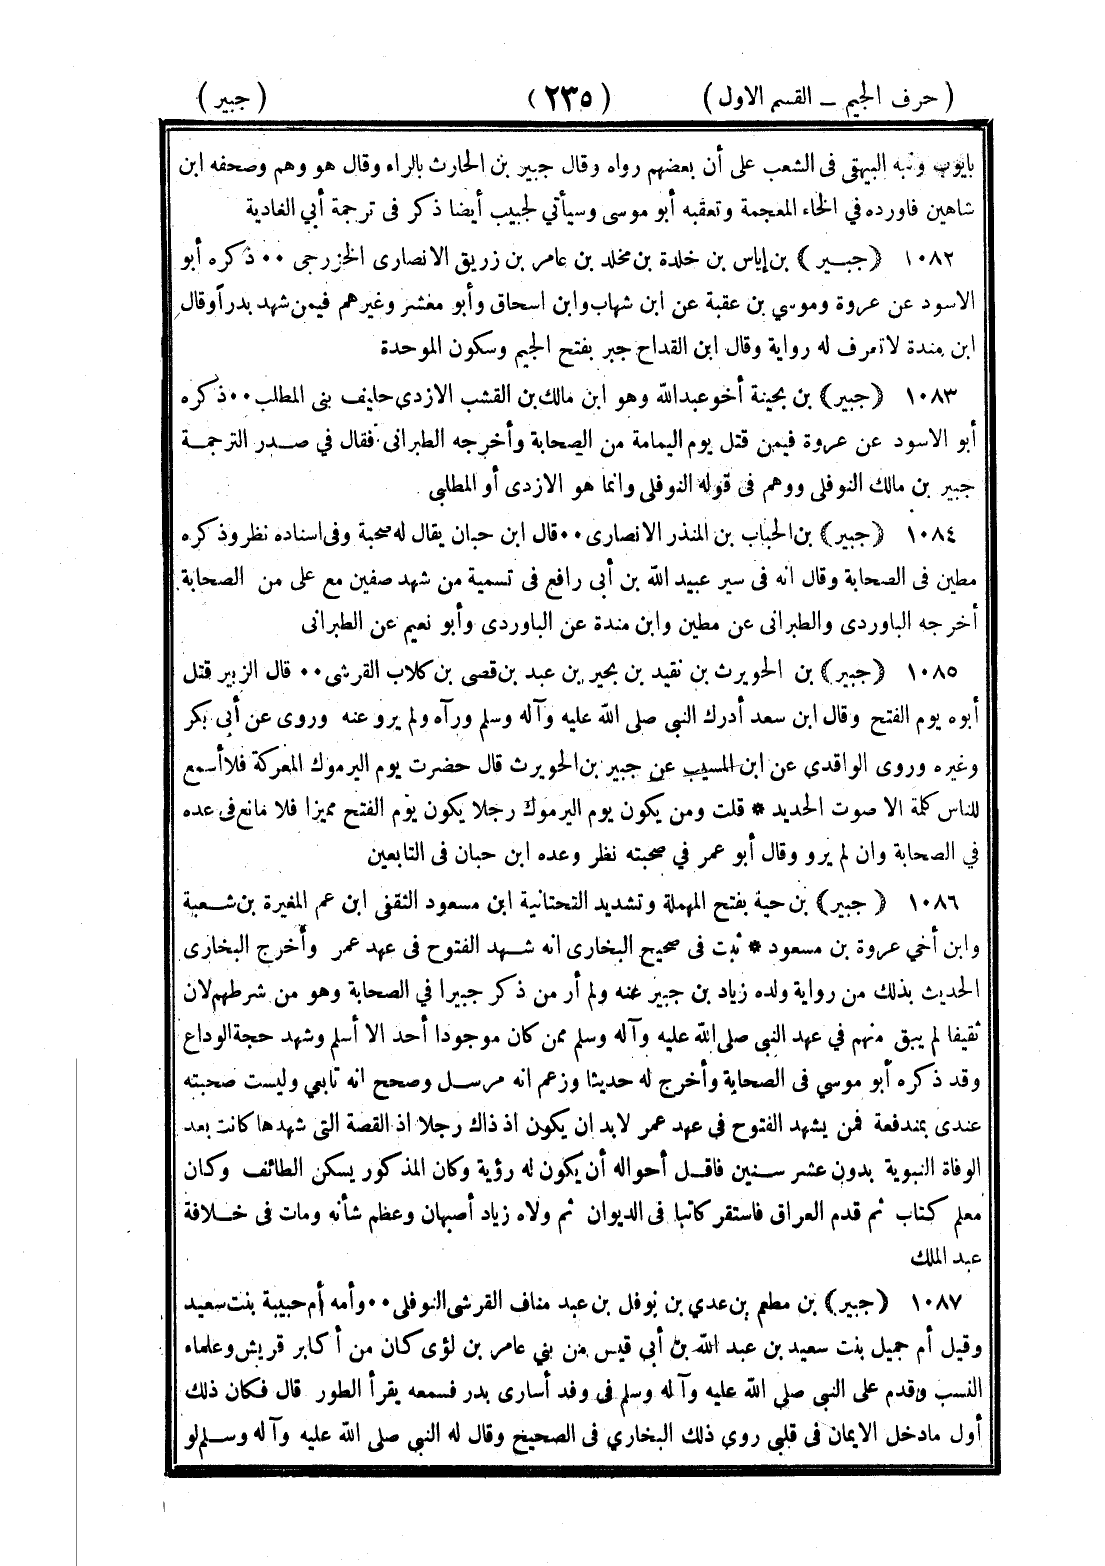 ( حرف الجيم – القسم الاول ) ( ٢٣٥ ) ( جبير )
بأيوب ونبه البيهقى فى الشعب على أن بعضهم رواه وقال جبير بن الحارث بالراء وقال هو وهم وصحفه ابن
شاهين فاورده في الخاء المعجمة وتعقبه أبو موسى وسيأتي لجبيب أيضا ذكر فى ترجمة أبي الغادية
١٠٨٢ ( جبير ) بن إياس بن خلدة بن مخلد بن عامر بن زريق الانصارى الخزرجى ٠٠ ذكره أبو
الاسود عن عروة وموسي بن عقبة عن ابن شهاب وابن اسحاق وأبو معشر وغيرهم فيمن شهد بدراً وقال
ابن مندة لا تعرف له رواية وقال ابن القداح جبر بفتح الجيم وسكون الموحدة
١٠٨٣ ( جبير ) بن بحينة أخو عبدالله وهو ابن مالك بن القشب الازدى حليف بنى المطلب ٠٠ ذكره
أبو الاسود عن عروة فيمن قتل يوم اليمامة من الصحابة وأخرجه الطبرانى فقال في صدر الترجمة
جبير بن مالك النوفلى ووهم فى قوله النوفلى وانما هو الازدى أو المطلبى
١٠٨٤ ( جبير ) بن الحباب بن المنذر الانصارى ٠٠ قال ابن حبان يقال له صحبة وفى اسناده نظر وذكره
مطين فى الصحابة وقال انه فى سير عبيد الله بن أبى رافع فى تسمية من شهد صفين مع على من الصحابة
أخرجه الباوردى والطبرانى عن مطين وابن مندة عن الباوردى وأبو نعيم عن الطبرانى
١٠٨٥ ( جبير ) بن الحويرث بن نقيد بن بحير بن عبد بن قصى بن كلاب القرشى ٠٠ قال الزبير قتل
أبوه يوم الفتح وقال ابن سعد أدرك النبى صلى الله عليه وآله وسلم ورآه ولم يرو عنه وروى عن أبي بكر
وغيره وروى الواقدى عن ابن المسيب عن جبير بن الحويرث قال حضرت يوم اليرموك المعركة فلا أسمع
للناس كلمة الا صوت الحديد * قلت ومن يكون يوم اليرموك رجلا يكون يوم الفتح مميزا فلا مانع فى عده
في الصحابة وان لم يرو وقال أبو عمر في صحبته نظر وعده ابن حبان فى التابعين
١٠٨٦ ( جبير ) بن حية بفتح المهملة وتشديد التحتانية ابن مسعود الثقفى ابن عم المغيرة بن شعبة
وابن أخي عروة بن مسعود * ثبت فى صحيح البخارى انه شهد الفتوح فى عهد عمر وأخرج البخارى
الحديث بذلك من رواية ولده زياد بن جبير عنه ولم أر من ذكر جبيرا في الصحابة وهو من شرطهم لان
ثقيفا لم يبق منهم في عهد النبى صلى الله عليه وآله وسلم ممن كان موجودا أحد الا أسلم وشهد حجة الوداع
وقد ذكره أبو موسي فى الصحابة وأخرج له حديثا وزعم انه مرسل وصحح انه تابعي وليست صحبته
عندى بمندفعة فمن يشهد الفتوح في عهد عمر لابد ان يكون اذ ذاك رجلا اذ القصة التى شهدها كانت بعد
الوفاة النبوية بدون عشر سنين فاقل أحواله أن يكون له رؤية وكان المذكور يسكن الطائف وكان
معلم كتاب ثم قدم العراق فاستقر كاتبا فى الديوان ثم ولاه زياد أصبهان وعظم شأنه ومات فى خلافة
عبد الملك
١٠٨٧ ( جبير ) بن مطعم بن عدي بن نوفل بن عبد مناف القرشى النوفلى ٠٠ وأمه أم حبيبة بنت سعيد
وقيل أم جميل بنت سعيد بن عبد الله بن أبي قيس من بني عامر بن لؤى كان من أكابر قريش وعلماء
النسب وقدم على النبى صلى الله عليه وآله وسلم فى وفد أسارى بدر فسمعه يقرأ الطور قال فكان ذلك
أول مادخل الايمان فى قلبى روي ذلك البخاري فى الصحيح وقال له النبي صلى الله عليه وآله وسلم لو